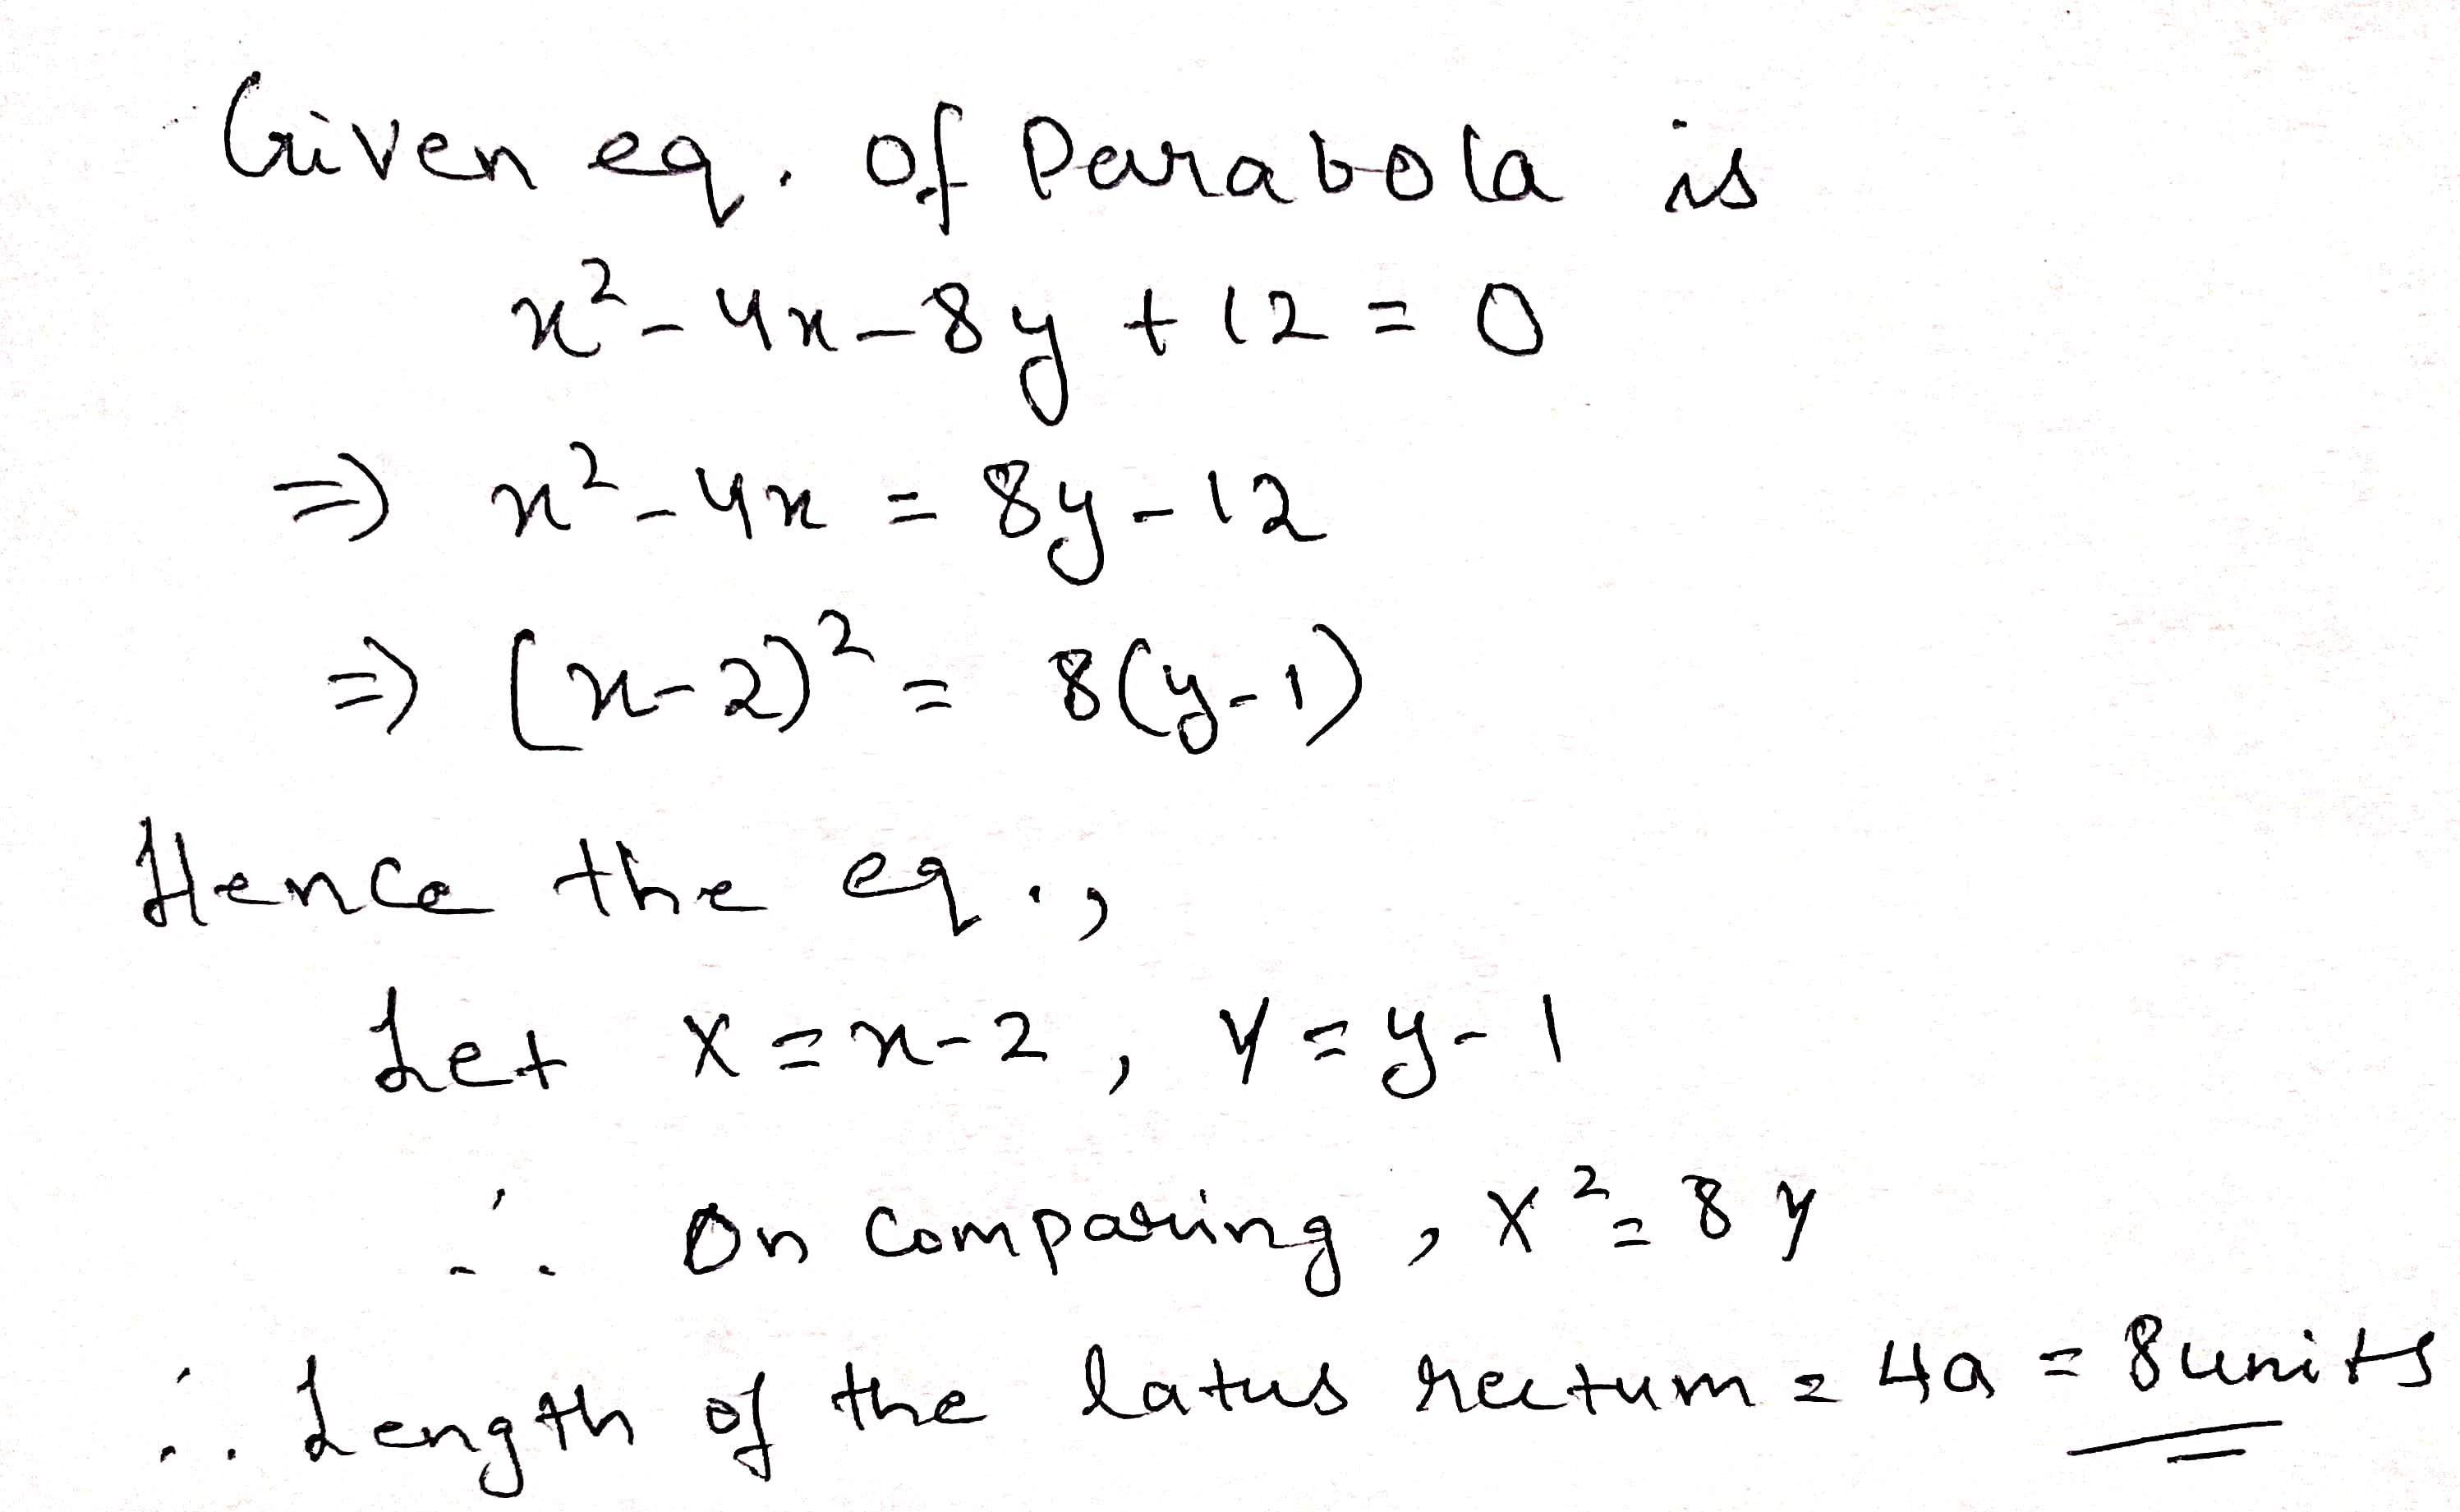 Given eq. of Parabola is
x² - 4x - 8y + 12 = 0
⇒ x² - 4x = 8y - 12
⇒ (x-2)² = 8(y-1)
Hence the eq.,
Let X = x-2, Y = y-1
∴ On comparing, X² = 8Y
∴ Length of the latus rectum = 4a = 8units